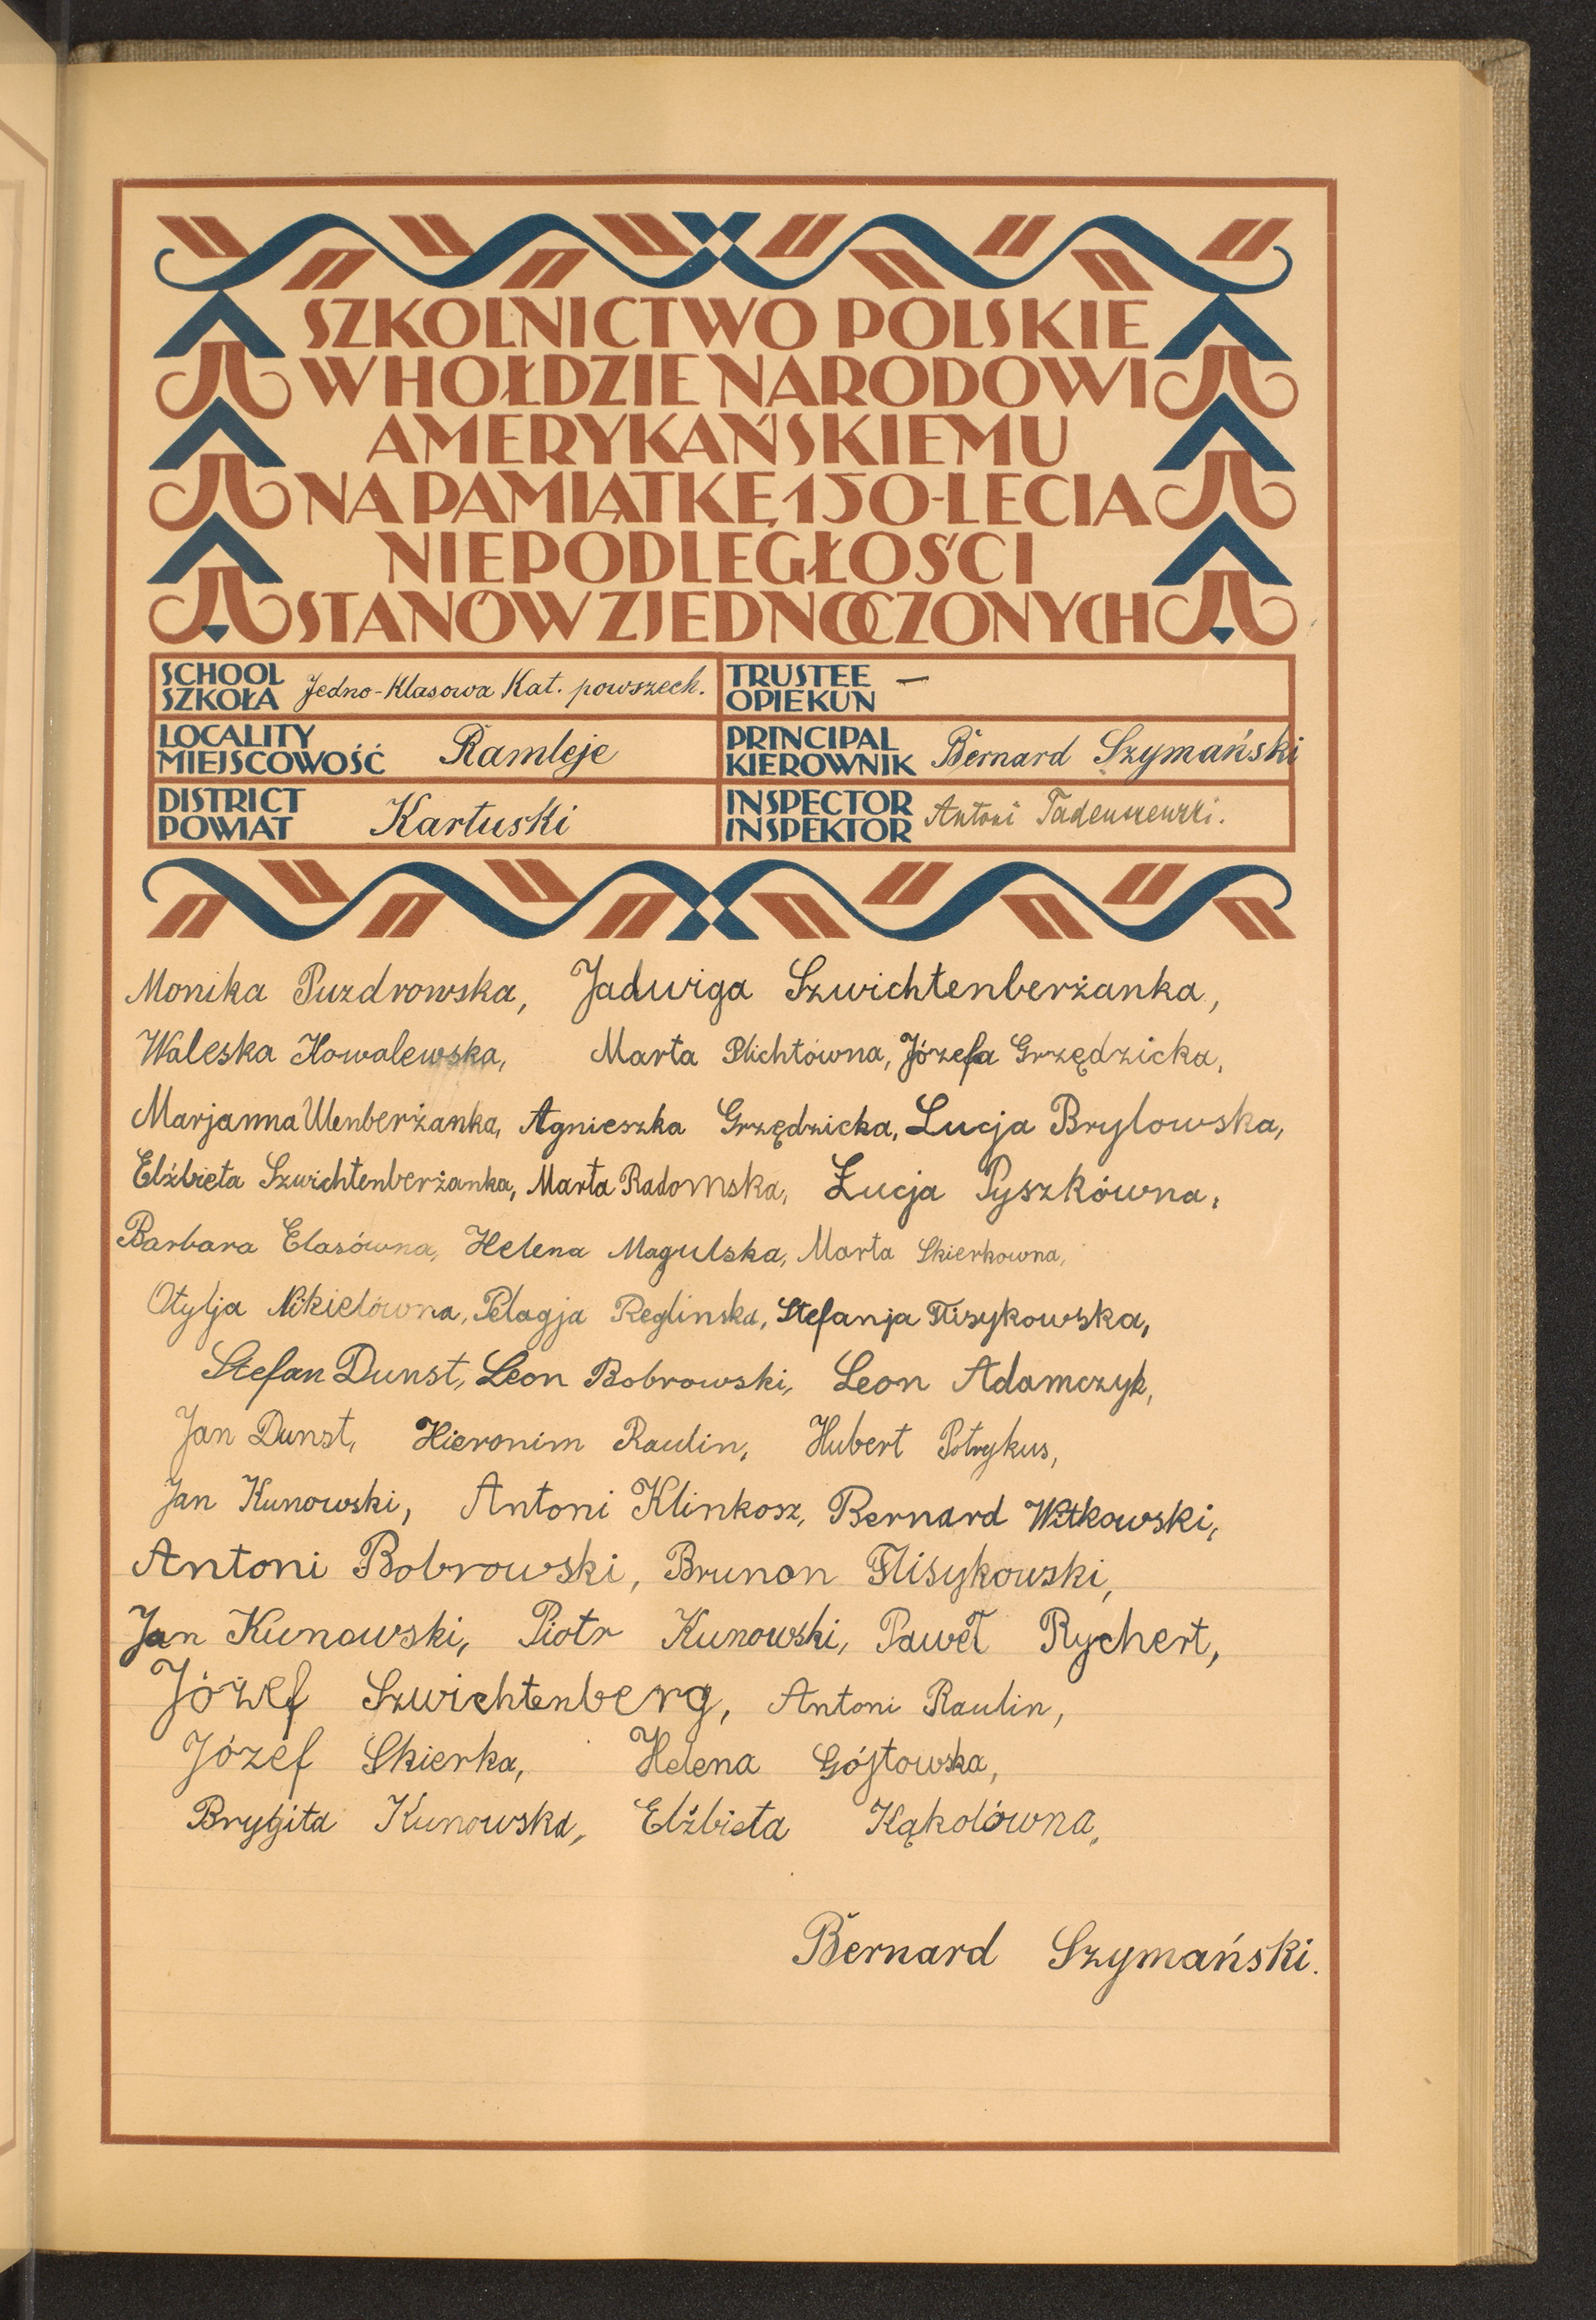 SZKOLNICTWO POLSKIE
W HOŁDZIE NARODOWI
AMERYKAŃSKIEMU
NA PAMIĄTKĘ 150-LECIA
NIEPODLEGŁOŚCI
STANÓW ZJEDNOCZONYCH
SCHOOL
SZKOŁA Jedno-Klasowa Kat. powszech.
TRUSTEE
OPIEKUN —
LOCALITY
MIEJSCOWOŚĆ Ramleje
PRINCIPAL
KIEROWNIK Bernard Szymański
DISTRICT
POWIAT Kartuski
INSPECTOR
INSPEKTOR Antoni Tadeuszewski.
Monika Puzdrowska, Jadwiga Szwichtenberżanka,
Waleska Kowalewska, Marta Plichtówna, Józefa Grzędzicka,
Marjanna Ulenberżanka, Agnieszka Grzędzicka, Lucja Brylowska,
Elżbieta Szwichtenberżanka, Marta Radomska, Łucja Pyszkówna,
Barbara Elasówna, Helena Magulska, Marta Skierkowna,
Otylja Nikielówna, Pelagja Reglinska, Stefanja Flisykowska,
Stefan Dunst, Leon Bobrowski, Leon Adamczyk,
Jan Dunst, Hieronim Raulin, Hubert Potrykus,
Jan Kunowski, Antoni Klinkosz, Bernard Witkowski,
Antoni Bobrowski, Brunon Flisykowski,
Jan Kunowski, Piotr Kunowski, Paweł Rychert,
Józef Szwichtenberg, Antoni Raulin,
Józef Skierka, Helena Gójtowska,
Brygita Kunowska, Elżbieta Kąkolówna,
Bernard Szymański.